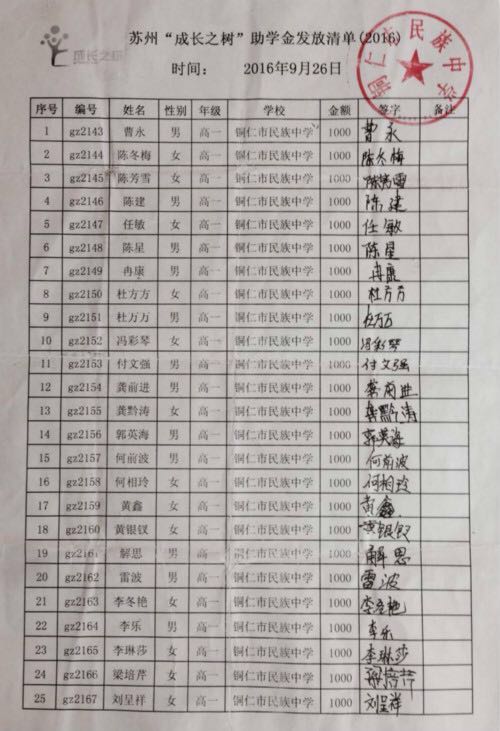 成长之树
苏州“成长之树”助学金发放清单(2016)
时间： 2016年9月26日
铜仁市民族中学
序号 编号 姓名 性别 年级 学校 金额 签字 备注
1 gz2143 曹永 男 高一 铜仁市民族中学 1000 曹永
2 gz2144 陈冬梅 女 高一 铜仁市民族中学 1000 陈冬梅
3 gz2145 陈芳雪 女 高一 铜仁市民族中学 1000 陈芳雪
4 gz2146 陈建 男 高一 铜仁市民族中学 1000 陈建
5 gz2147 任敏 女 高一 铜仁市民族中学 1000 任敏
6 gz2148 陈星 男 高一 铜仁市民族中学 1000 陈星
7 gz2149 冉康 男 高一 铜仁市民族中学 1000 冉康
8 gz2150 杜方方 女 高一 铜仁市民族中学 1000 杜方方
9 gz2151 杜万万 男 高一 铜仁市民族中学 1000 杜万万
10 gz2152 冯彩琴 女 高一 铜仁市民族中学 1000 冯彩琴
11 gz2153 付文强 男 高一 铜仁市民族中学 1000 付文强
12 gz2154 龚前进 男 高一 铜仁市民族中学 1000 龚前进
13 gz2155 龚黔涛 女 高一 铜仁市民族中学 1000 龚黔涛
14 gz2156 郭英海 男 高一 铜仁市民族中学 1000 郭英海
15 gz2157 何前波 男 高一 铜仁市民族中学 1000 何前波
16 gz2158 何相玲 女 高一 铜仁市民族中学 1000 何相玲
17 gz2159 黄鑫 女 高一 铜仁市民族中学 1000 黄鑫
18 gz2160 黄银钗 女 高一 铜仁市民族中学 1000 黄银钗
19 gz2161 解思 男 高一 铜仁市民族中学 1000 解思
20 gz2162 雷波 男 高一 铜仁市民族中学 1000 雷波
21 gz2163 李冬艳 女 高一 铜仁市民族中学 1000 李冬艳
22 gz2164 李乐 男 高一 铜仁市民族中学 1000 李乐
23 gz2165 李琳莎 女 高一 铜仁市民族中学 1000 李琳莎
24 gz2166 梁培芹 女 高一 铜仁市民族中学 1000 梁培芹
25 gz2167 刘呈祥 女 高一 铜仁市民族中学 1000 刘呈祥